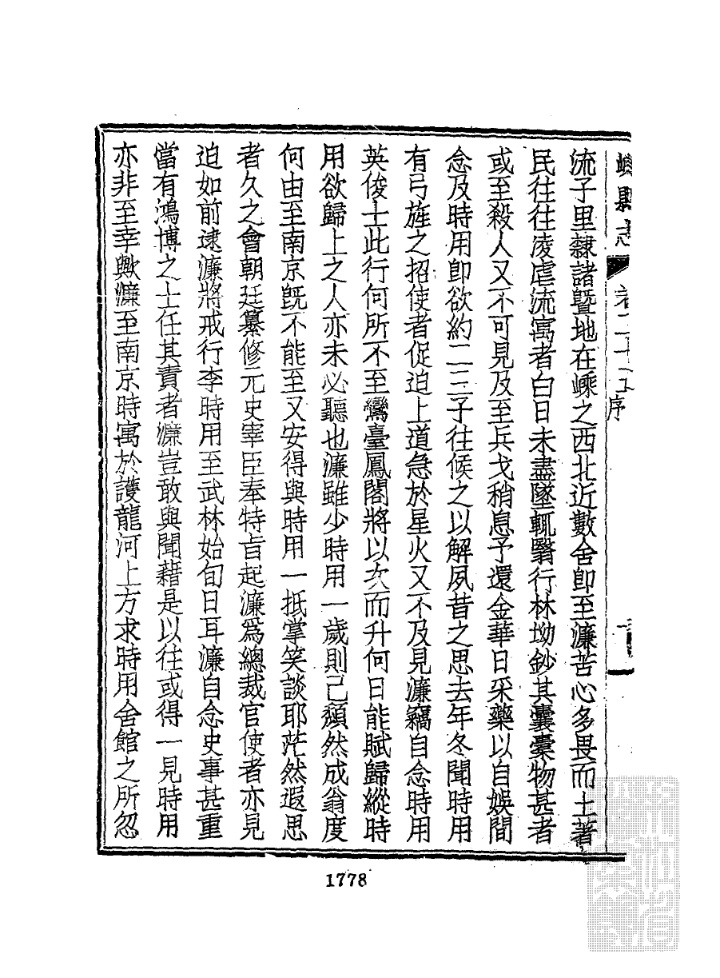 嵊縣志 卷二十 序
流子里隸諸暨地在嵊之西北近數舍卽至濂苦心多畏而土著
民往往淩虐流寓者白日未盡墜輒翳行林坳鈔其囊橐物甚者
或至殺人又不可見及至兵戈稍息予還金華日采藥以自娛間
念及時用卽欲約二三子往候之以解夙昔之思去年冬聞時用
有弓旌之招使者促迫上道急於星火又不及見濂竊自念時用
英俊士此行何所不至鸞臺鳳閣將以次而升何日能賦歸縱時
用欲歸上之人亦未必聽也濂雖少時用一歲則已頹然成翁度
何由至南京旣不能至又安得與時用一抵掌笑談耶茫然遐思
者久之會朝廷纂修元史宰臣奉特旨起濂爲總裁官使者亦見
迫如前逮濂將戒行李時用至武林始旬日耳濂自念史事甚重
當有鴻博之士任其責者濂豈敢與聞藉是以往或得一見時用
亦非至幸歟濂至南京時寓於護龍河上方求時用舍館之所忽
1778